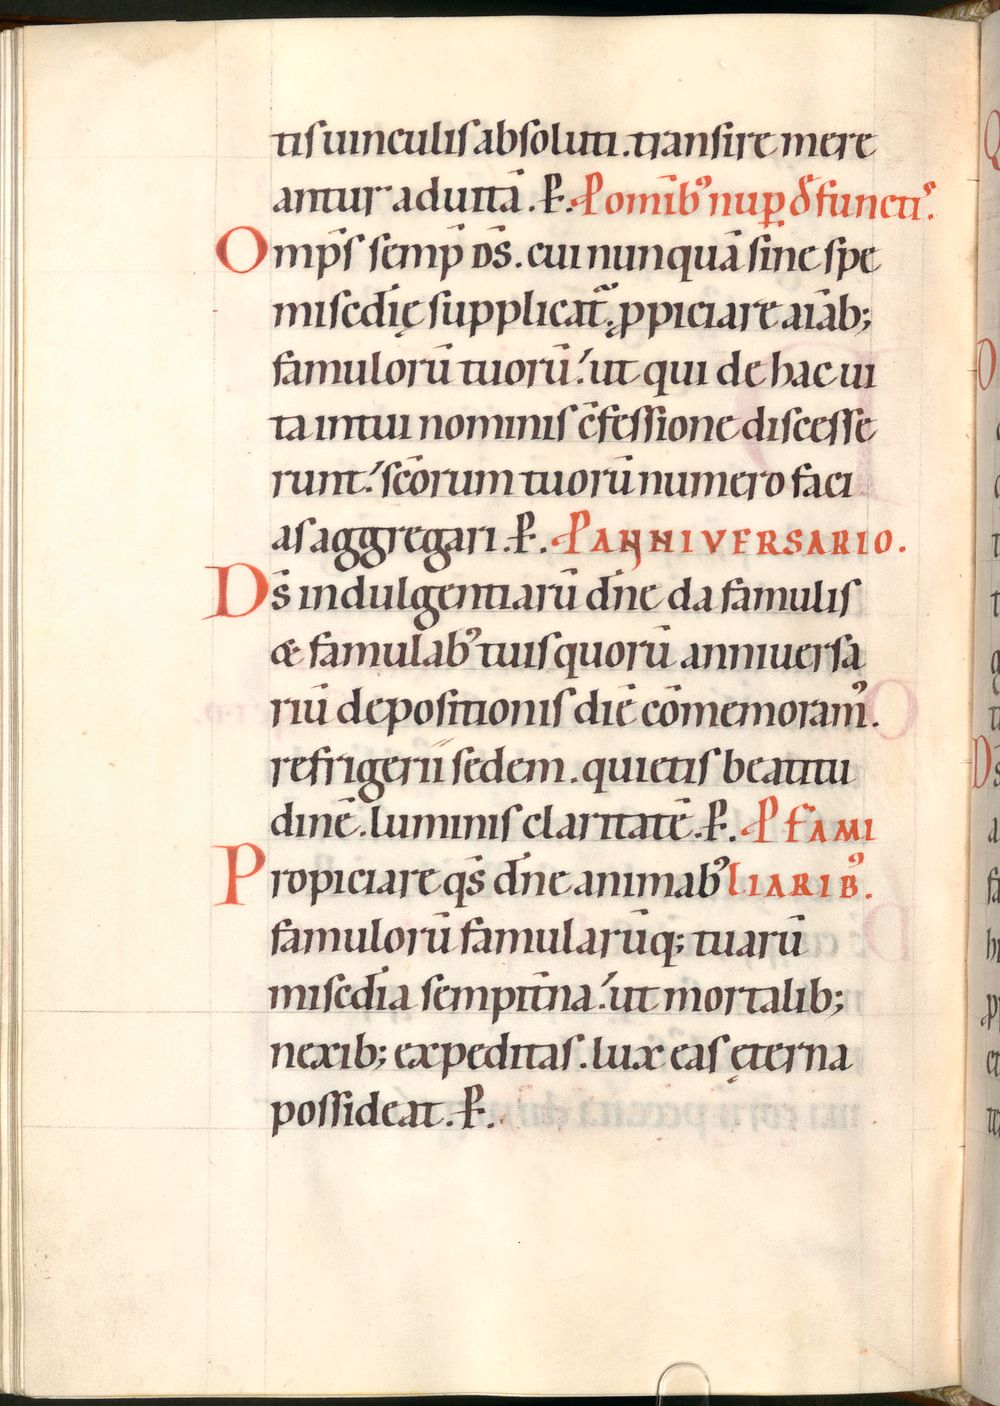 tiſ uinculiſ abſoluti. tranſire mere
antur ad uitā. P̶. P omīb᷒ nuꝑ d̄functi᷒.
Omp̄ſ ſemp̄ DS̄. cui nunquā ſine ſpe
miſcd̄ię ſupplicat᷑. ꝓpiciare aīab;
famulorū tuorū. ut qui de hac ui
ta in tui nominiſ c̄feſſione diſceſſe
runt. ſc̄orum tuorū numero faci
aſ aggregari. P̶. P ANNIVERSARIO.
Ds̄ indulgentiarū dn̄e da famuliſ
& famulab᷒ tuiſ quorū anniuerſa
riū depoſitioniſ diē cōmemoram᷒.
refrigerii ſedem. quietiſ beatitu
dinē. luminiſ claritatē. P̶. P FAMI
Propiciare qs̄ dn̄e animab᷒ LIARIB᷒.
famulorū famularūq; tuarū
miſcd̄ia ſempit̄na. ut mortalib;
nexib; expeditaſ. lux eaſ ęterna
poſſideat. P̶.